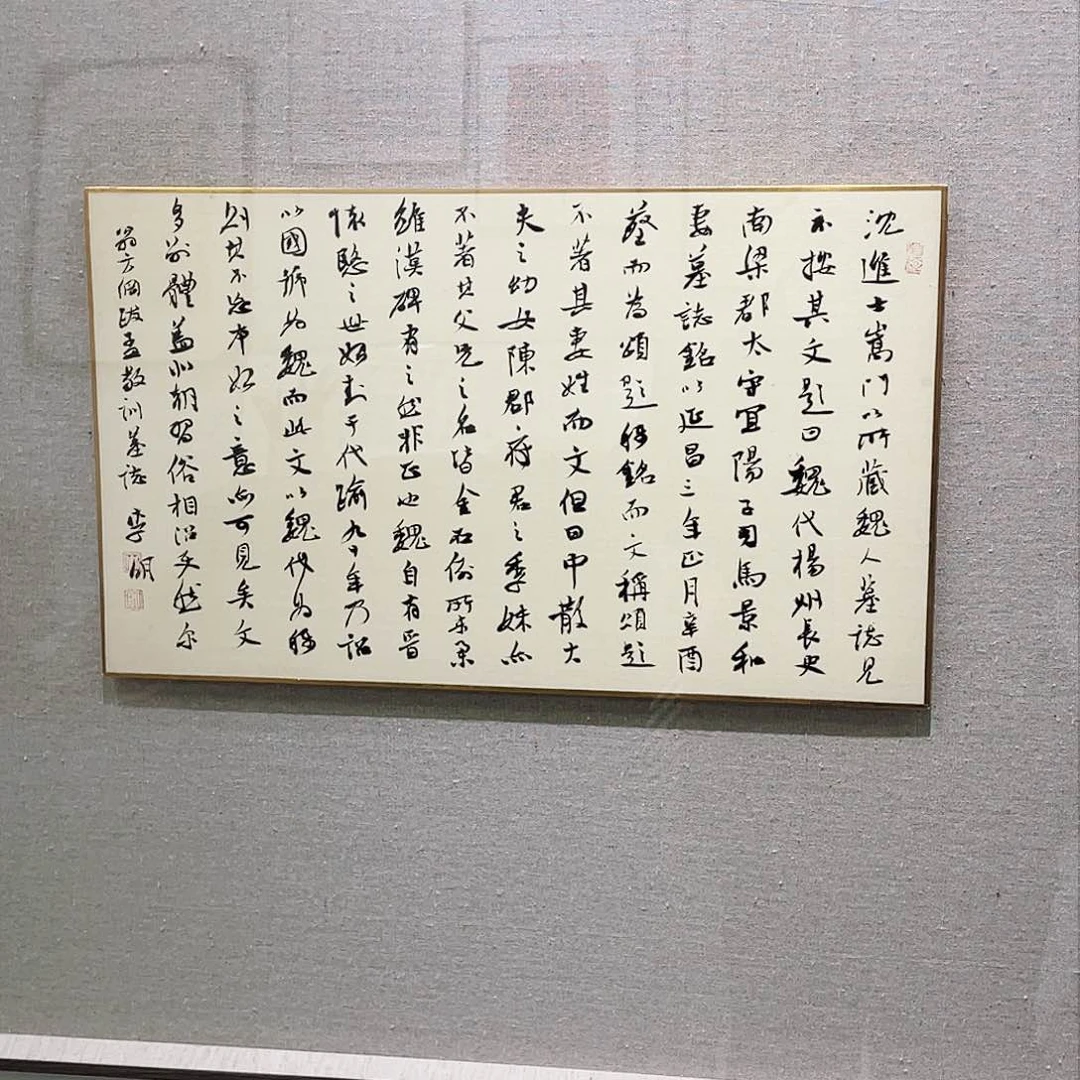 沈進士嵩門以所藏魏人墓誌見
示按其文題曰魏代楊州長史
南梁郡太守宜陽子司馬景和
妻墓誌銘以延昌三年正月辛酉
葬而為頌題稱銘而文稱頌題
不著其妻姓而文但曰中散大
夫之幼女陳郡府君之季妹亦
不著其父兄之名皆金石例所未
雖漢碑有之然非正也魏自有晉
懷愍之世始封于代踰九十年乃詔
以國號為魏而此文以魏代為稱
則其不忘本始之意亦可見矣文
多別體蓋北朝習俗相沿云然尔
翁方綱跋孟敬訓墓誌 李